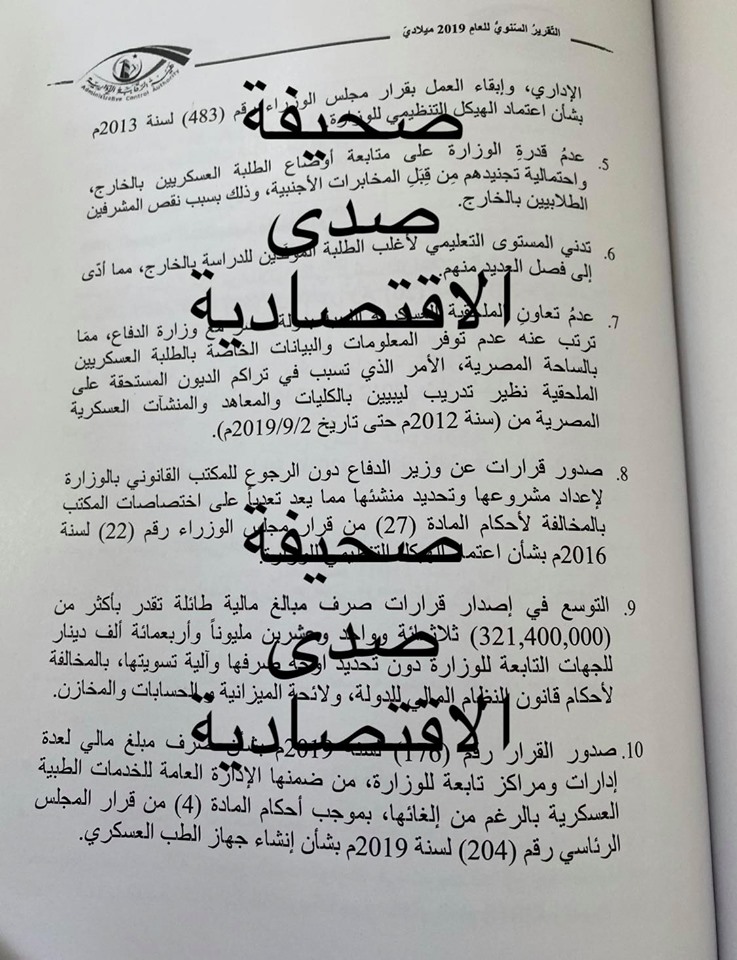 التقرير السنوي للعام 2019 ميلادي
هيئة الرقابة الإدارية
Administrative Control Authority
الإداري، وإبقاء العمل بقرار مجلس الوزراء رقم (483) لسنة 2013م
بشأن اعتماد الهيكل التنظيمي للوزارة.
5. عدمُ قدرةِ الوزارة على متابعة أوضاع الطلبة العسكريين بالخارج،
واحتمالية تجنيدهم مِن قِبَلِ المخابرات الأجنبية، وذلك بسبب نقص المشرفين
الطلابيين بالخارج.
6. تدني المستوى التعليمي لأغلب الطلبة الموفدين للدراسة بالخارج، مما أدّى
إلى فصل العديد منهم.
7. عدمُ تعاونِ الملحقية العسكرية مع وزارة الدفاع، ممّا
ترتب عنه عدم توفر المعلومات والبيانات الخاصّة بالطلبة العسكريين
بالساحة المصرية، الأمر الذي تسبب في تراكم الديون المستحقة على
الملحقية نظير تدريب ليبيين بالكليات والمعاهد والمنشآت العسكرية
المصرية من (سنة 2012م حتى تاريخ 2019/9/2م).
8. صدور قرارات عن وزير الدفاع دون الرجوع للمكتب القانوني بالوزارة
لإعداد مشروعها وتحديد منشئها مما يعد تعدياً على اختصاصات المكتب
بالمخالفة لأحكام المادة (27) من قرار مجلس الوزراء رقم (22) لسنة
2016م بشأن اعتماد الهيكل التنظيمي للوزارة.
9. التوسع في إصدار قرارات صرف مبالغ مالية طائلة تقدر بأكثر من
(321,400,000) ثلاثمائة وواحد وعشرين مليوناً وأربعمائة ألف دينار
للجهات التابعة للوزارة دون تحديد أوجه صرفها وآلية تسويتها، بالمخالفة
لأحكام قانون النظام المالي للدولة، ولائحة الميزانية والحسابات والمخازن.
10. صدور القرار رقم (176) لسنة 2019م بشأن صرف مبلغ مالي لعدة
إدارات ومراكز تابعة للوزارة، من ضمنها الإدارة العامة للخدمات الطبية
العسكرية بالرغم من إلغائها، بموجب أحكام المادة (4) من قرار المجلس
الرئاسي رقم (204) لسنة 2019م بشأن إنشاء جهاز الطب العسكري.
صحيفة
صدى
الاقتصادية
صحيفة
صدى
الاقتصادية